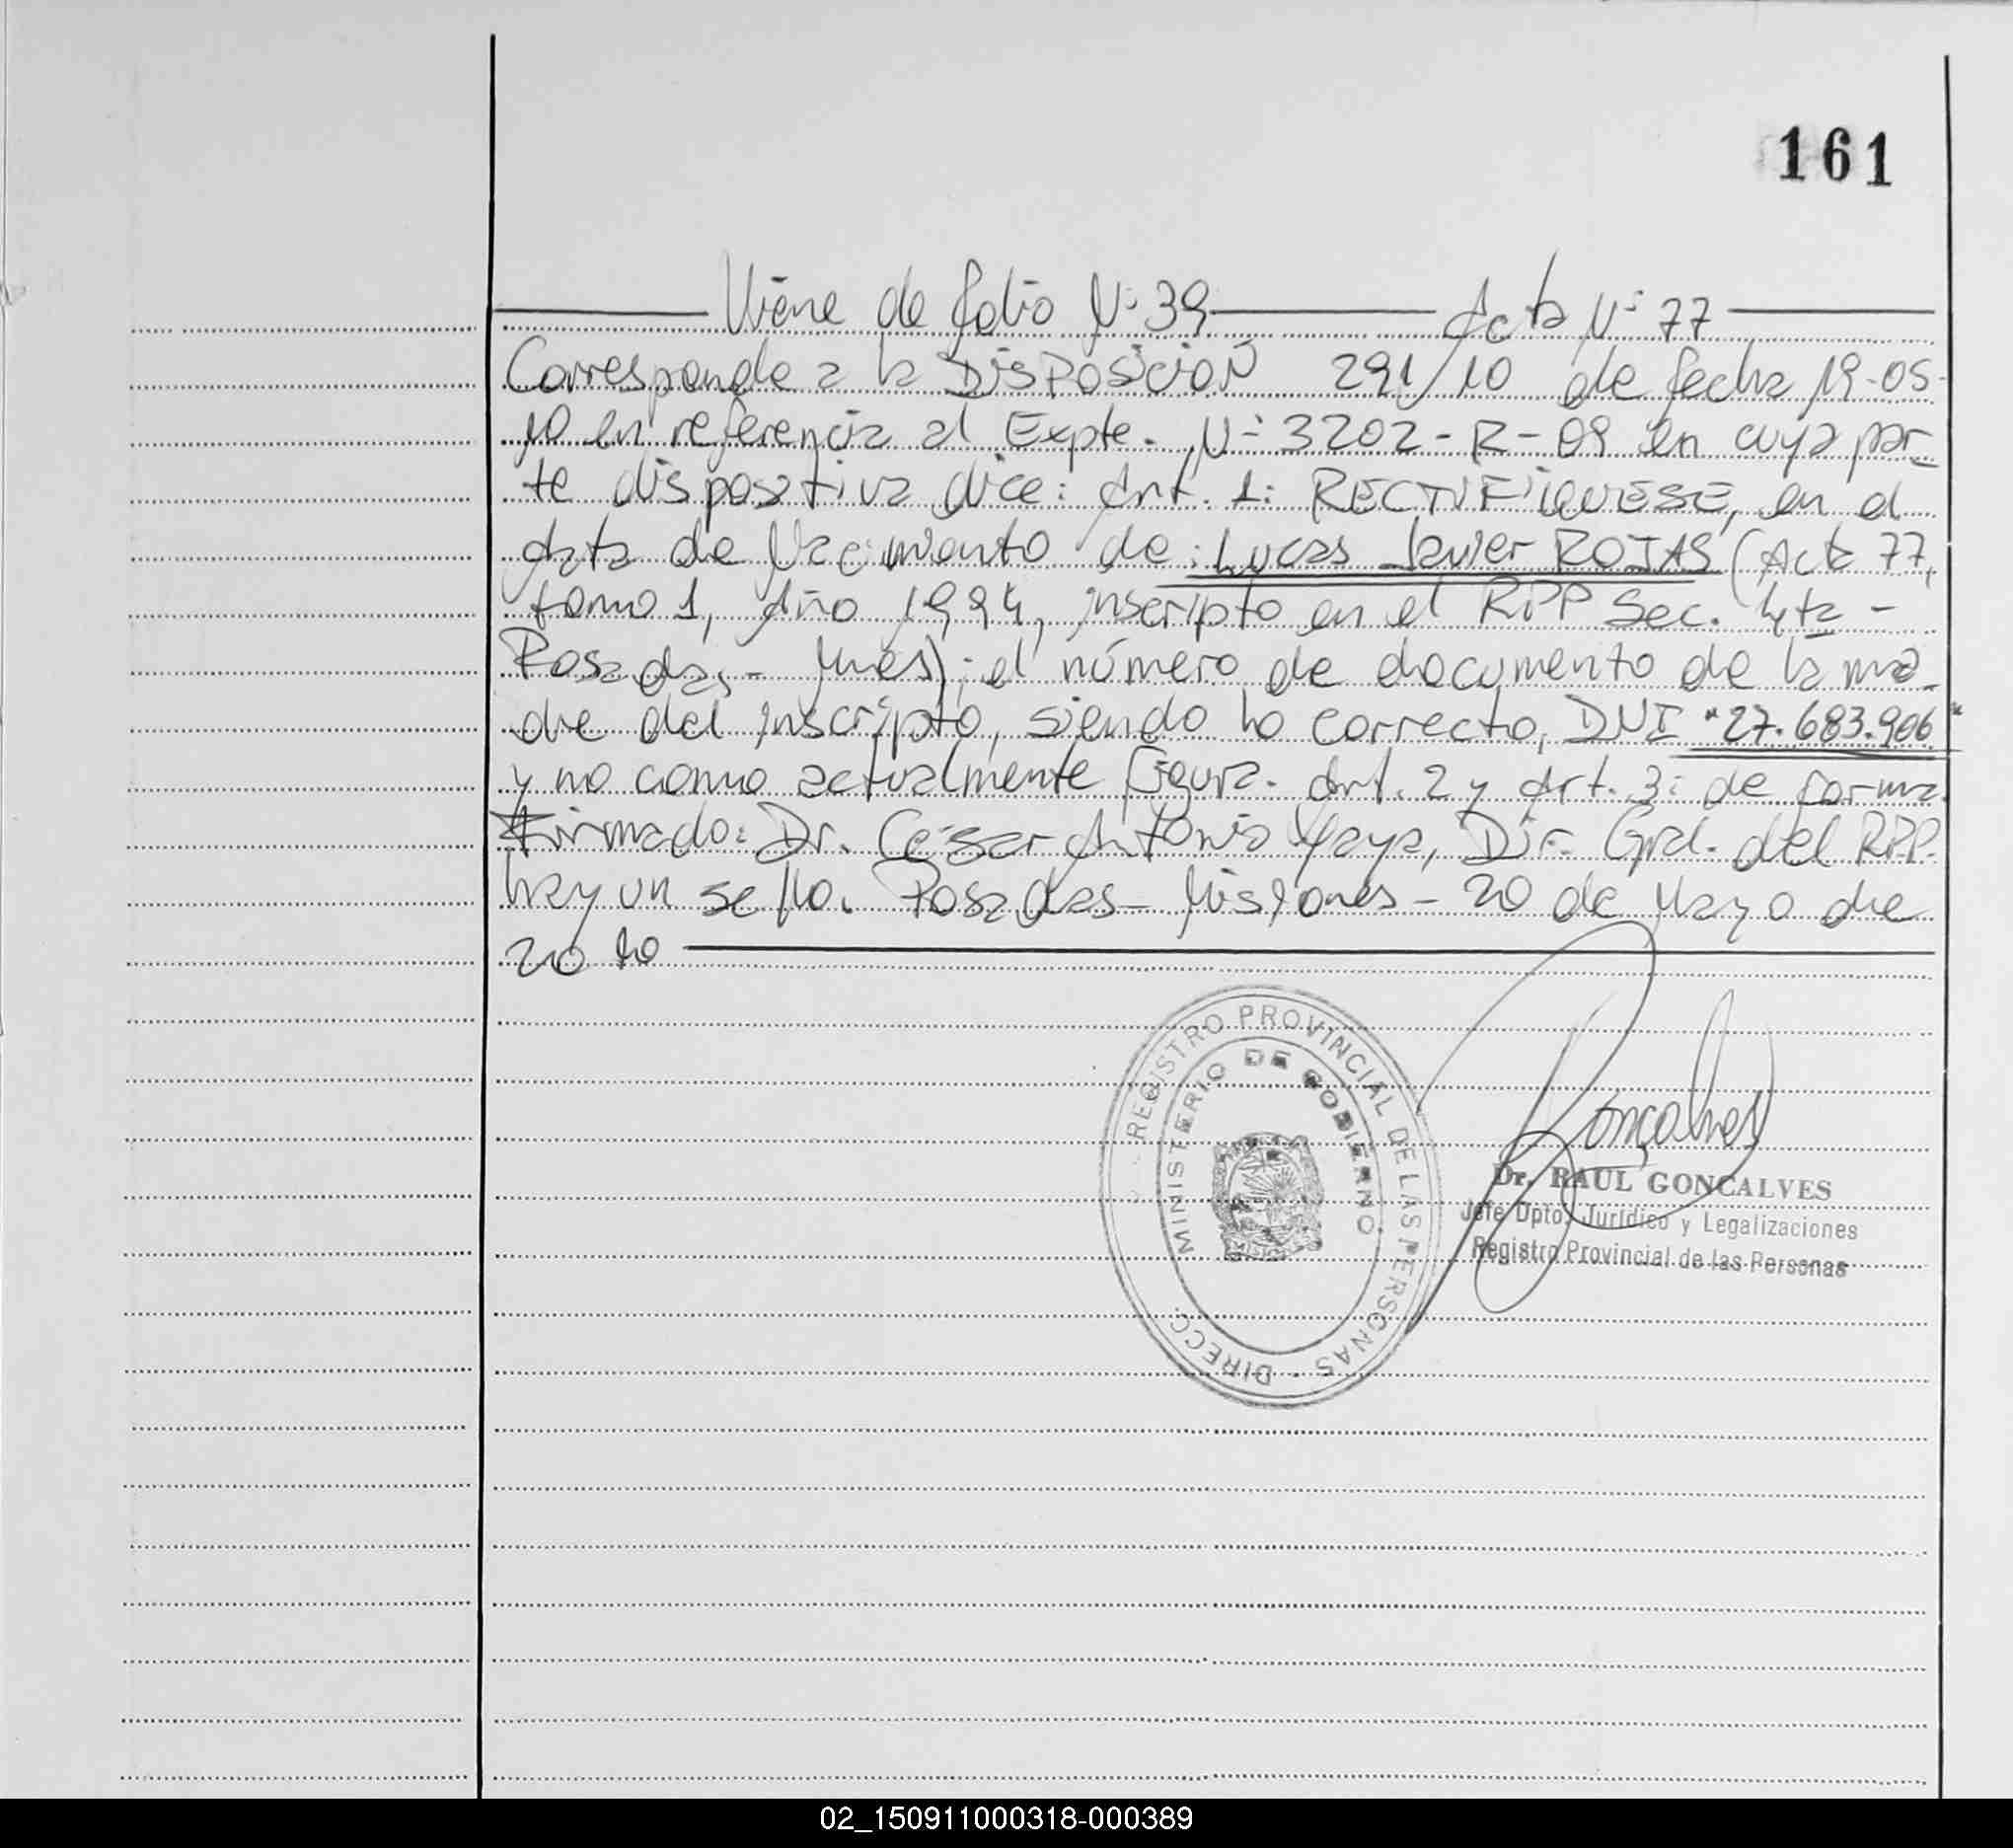 161
Viene de folio Nº 39 Acta Nº 77
Corresponde a la DISPOSICION 291/10 de fecha 19-05-
10 en referencia al Expte. Nº 3202-R-09 en cuya par-
te dispositiva dice: Art. 1: RECTIFIQUESE, en el
Acta de Nacimiento de: Lucas Javier ROJAS (Acta 77,
tomo 1, Año 1994, inscripto en el RPP Sec. 4ta -
Posadas - Mnes); el número de documento de la ma-
dre del inscripto, siendo lo correcto, DNI "27.683.906"
y no como actualmente figura. Art. 2 y Art. 3: de forma.
Firmado: Dr. César Antonio Yaya, Dir. Gral. del RPP.
hay un sello. Posadas - Misiones - 20 de Mayo de
2010
REGISTRO PROVINCIAL DE LAS PERSONAS - DIRECC.
MINISTERIO DE GOBIERNO
Goncalves
Dr. RAUL GONCALVES
Jefe Dpto. Jurídico y Legalizaciones
Registro Provincial de las Personas
02_150911000318-000389